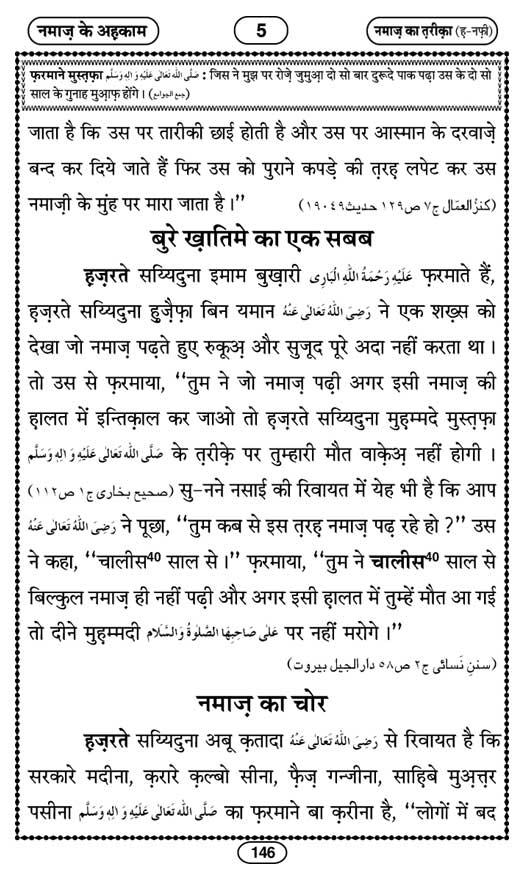 नमाज़ के अहकाम
5
नमाज़ का त़रीक़ा (ह़-नफ़ी)
फ़रमाने मुस्त़फ़ा صَلَّى اللهُ تَعَالٰى عَلَيْهِ وَاٰلِهٖ وَسَلَّم : जिस ने मुझ पर रोज़े जुमुआ़ दो सो बार दुरूदे पाक पढ़ा उस के दो सो
साल के गुनाह मुआ़फ़ होंगे । (جمع الجوامع)
जाता है कि उस पर तारीकी छाई होती है और उस पर आस्मान के दरवाज़े
बन्द कर दिये जाते हैं फिर उस को पुराने कपड़े की त़रह़ लपेट कर उस
नमाज़ी के मुंह पर मारा जाता है ।” (کنزُالعمّال ج٧ ص١٢٩ حدیث١٩٠٤٩)
बुरे ख़ातिमे का एक सबब
ह़ज़रते सय्यिदुना इमाम बुख़ारी عَلَيْهِ رَحْمَةُ اللهِ الْبَارِى फ़रमाते हैं,
ह़ज़रते सय्यिदुना हु़ज़ैफ़ा बिन यमान رَضِىَ اللهُ تَعَالٰى عَنْهُ ने एक शख़्स को
देखा जो नमाज़ पढ़ते हुए रुकूअ़ और सुजूद पूरे अदा नहीं करता था ।
तो उस से फ़रमाया, “तुम ने जो नमाज़ पढ़ी अगर इसी नमाज़ की
ह़ालत में इन्तिक़ाल कर जाओ तो ह़ज़रते सय्यिदुना मुह़म्मदे मुस्त़फ़ा
صَلَّى اللهُ تَعَالٰى عَلَيْهِ وَاٰلِهٖ وَسَلَّم के त़रीक़े पर तुम्हारी मौत वाक़ेअ़ नहीं होगी ।
(صحیح بخاری ج١ ص١١٢) सु-नने नसाई की रिवायत में येह भी है कि आप
رَضِىَ اللهُ تَعَالٰى عَنْهُ ने पूछा, “तुम कब से इस त़रह़ नमाज़ पढ़ रहे हो ?” उस
ने कहा, “चालीस40 साल से ।” फ़रमाया, “तुम ने चालीस40 साल से
बिल्कुल नमाज़ ही नहीं पढ़ी और अगर इसी ह़ालत में तुम्हें मौत आ गई
तो दीने मुह़म्मदी عَلٰى صَاحِبِهَا الصَّلٰوةُ وَالسَّلَام पर नहीं मरोगे ।”
(سننِ نَسائی ج٢ ص٥٨ دارالجیل بیروت)
नमाज़ का चोर
ह़ज़रते सय्यिदुना अबू क़तादा رَضِىَ اللهُ تَعَالٰى عَنْهُ से रिवायत है कि
सरकारे मदीना, क़रारे क़ल्बो सीना, फ़ैज़ गन्जीना, साह़िबे मुअ़त़्त़र
पसीना صَلَّى اللهُ تَعَالٰى عَلَيْهِ وَاٰلِهٖ وَسَلَّم का फ़रमाने बा क़रीना है, “लोगों में बद
146